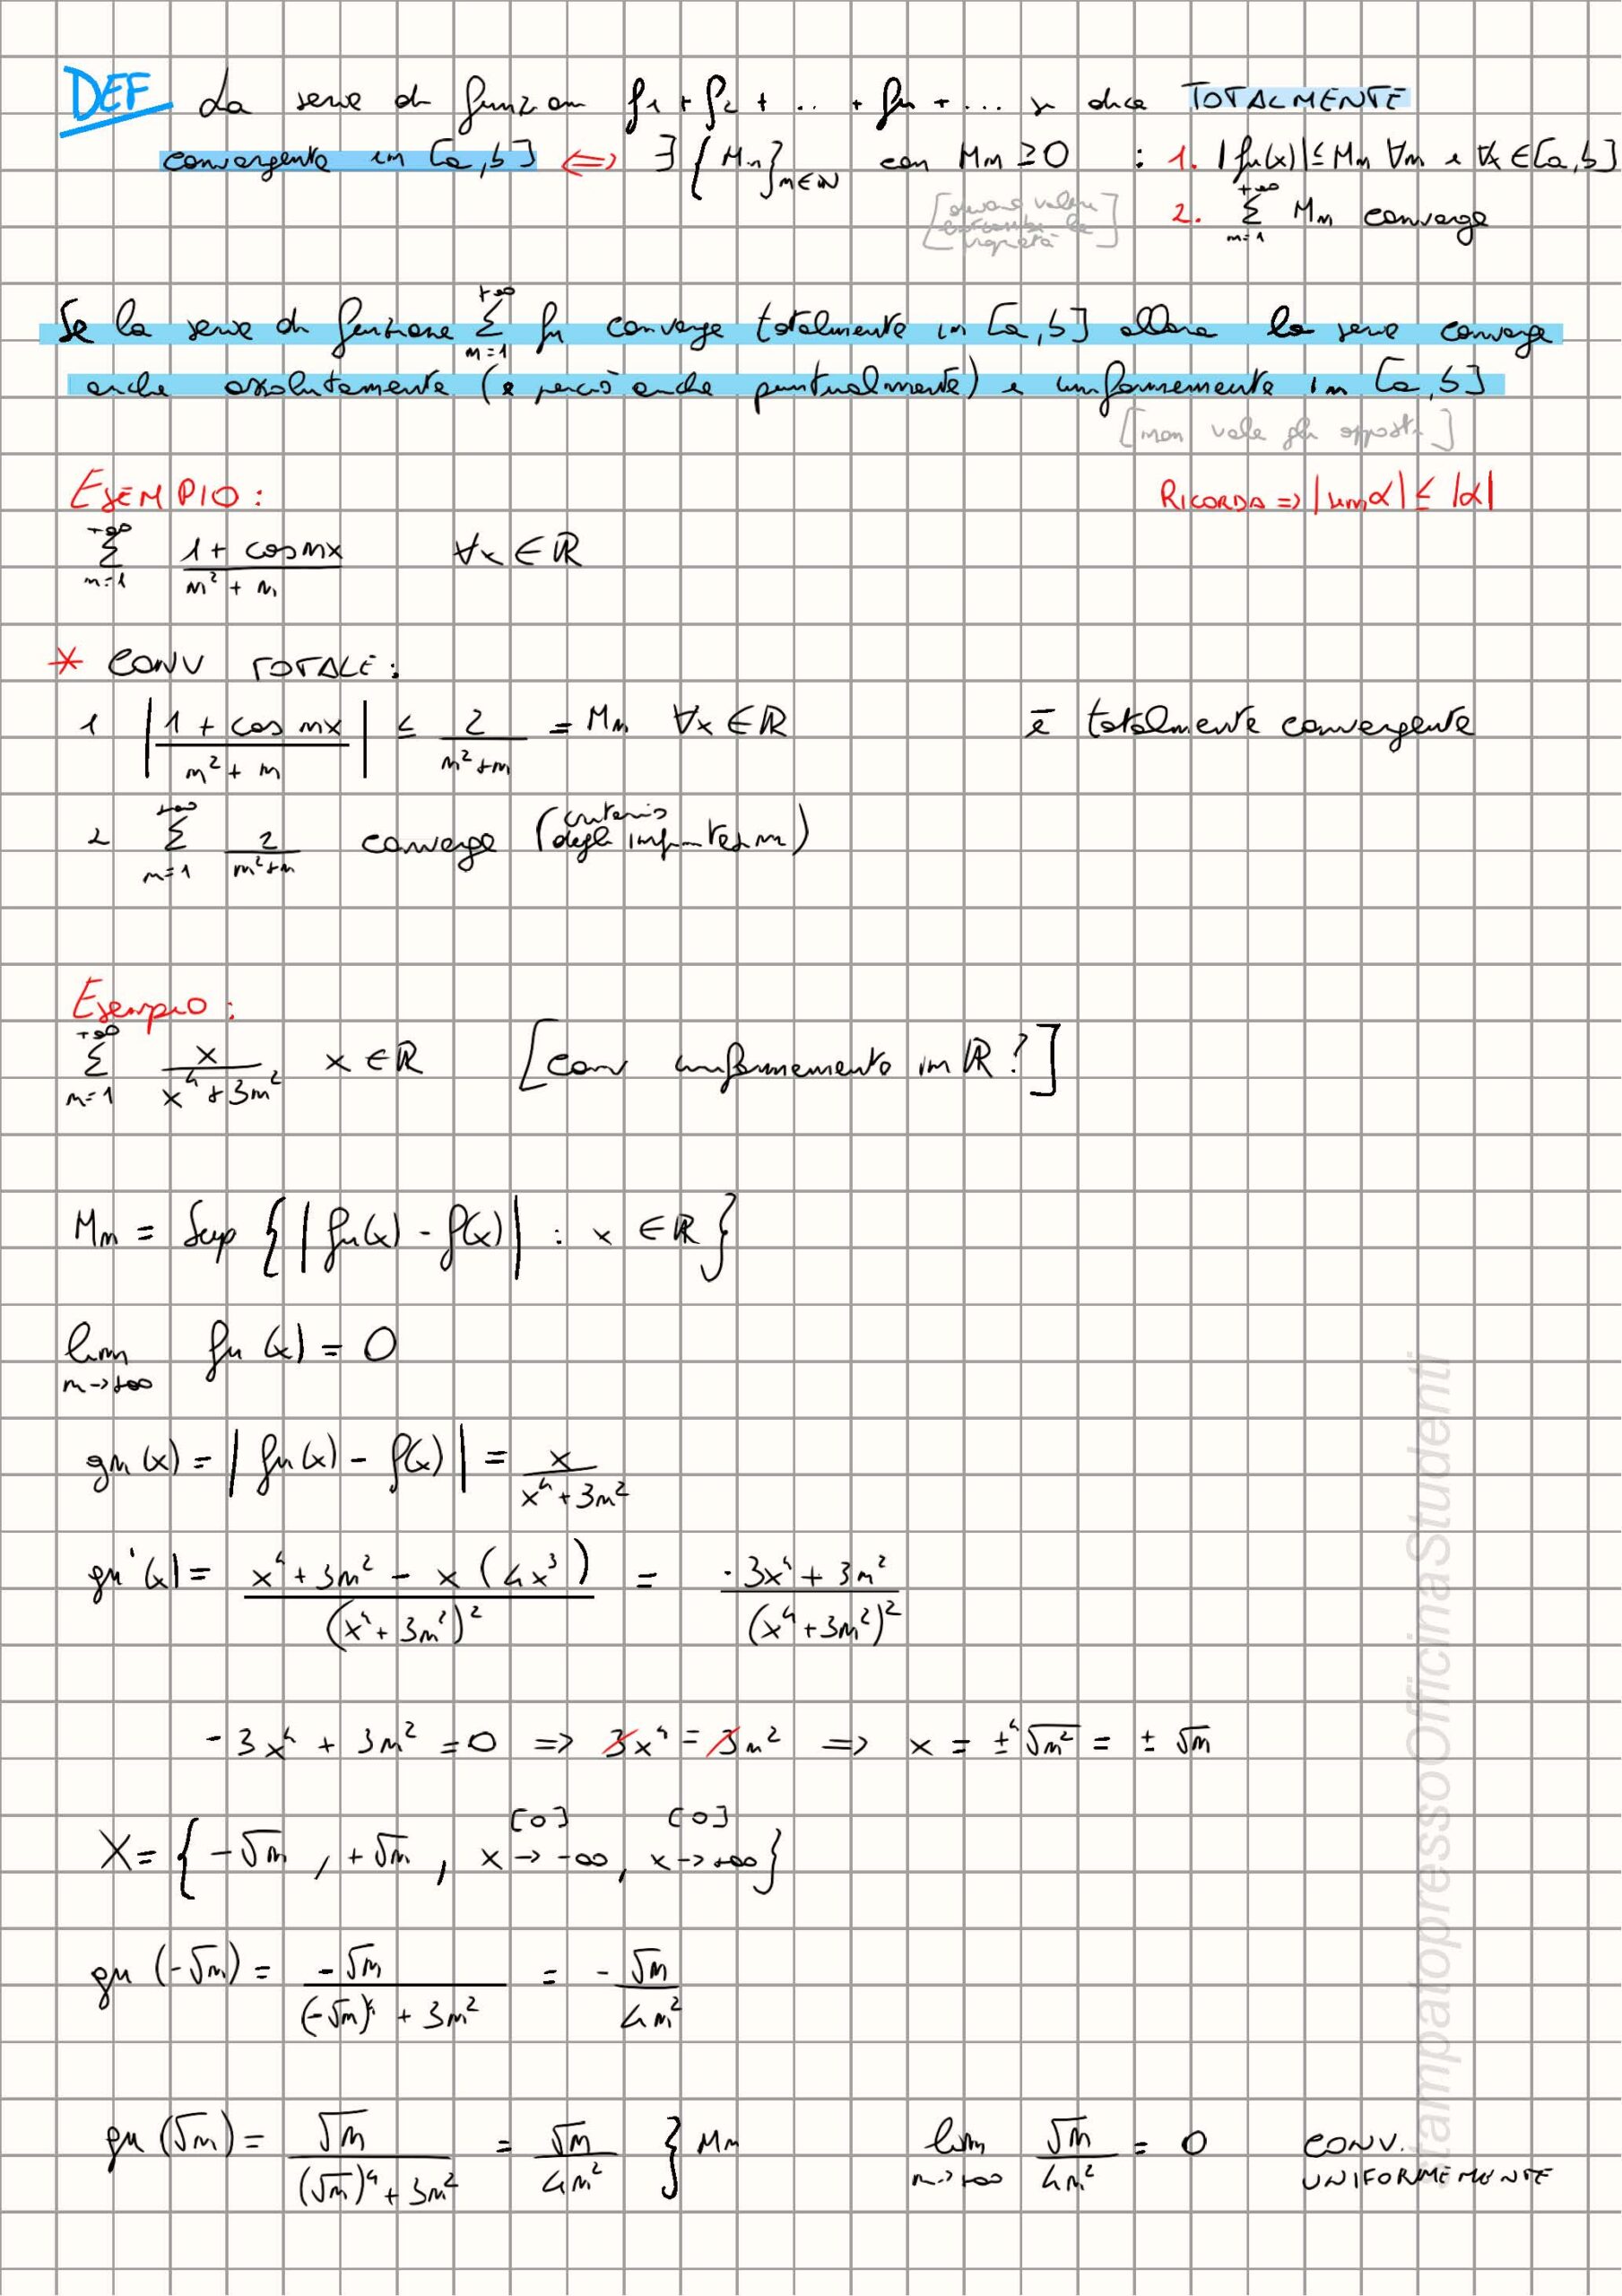 DEF La serie di funzioni f₁ + f₂ + ... + fn + ... si dice TOTALMENTE
convergente in [a,b] <=> ∃ {Mn}n∈ℕ con Mn ≥ 0 : 1. |fn(x)| ≤ Mn ∀n e ∀x ∈ [a,b]
[devono valere entrambe le proprietà] 2. Σ n=1 +∞ Mn converge
Se la serie di funzione Σ n=1 +∞ fn converge totalmente in [a,b] allora la serie converge
anche assolutamente (e perciò anche puntualmente) e uniformemente in [a,b]
[non vale gli opposti]
ESEMPIO: RICORDA => |sin α| ≤ |α|
Σ n=1 +∞ (1 + cos nx)/(n² + n) ∀x ∈ ℝ
* CONV TOTALE:
1 |(1 + cos nx)/(n² + n)| ≤ 2/(n²+n) = Mn ∀x ∈ ℝ è totalmente convergente
2 Σ n=1 +∞ 2/(n²+n) converge (criterio degli infinitesimi)
Esempio:
Σ n=1 +∞ x/(x⁴ + 3n²) x ∈ ℝ [conv uniformemente in ℝ?]
Mn = Sup {|fn(x) - f(x)| : x ∈ ℝ}
lim n→+∞ fn(x) = 0
gn(x) = |fn(x) - f(x)| = x/(x⁴ + 3n²)
gn'(x) = (x⁴ + 3n² - x(4x³))/(x⁴ + 3n²)² = (-3x⁴ + 3n²)/(x⁴ + 3n²)²
-3x⁴ + 3n² = 0 => 3x⁴ = 3n² => x = ±⁴√n² = ±√n
[0] [0]
X = {-√n, +√n, x → -∞, x → +∞}
gn(-√n) = -√n/((-√n)⁴ + 3n²) = -√n/4n²
gn(√n) = √n/((√n)⁴ + 3n²) = √n/4n² } Mn lim n→+∞ √n/4n² = 0 CONV. UNIFORMEMENTE
stampatopressoOfficinaStudenti